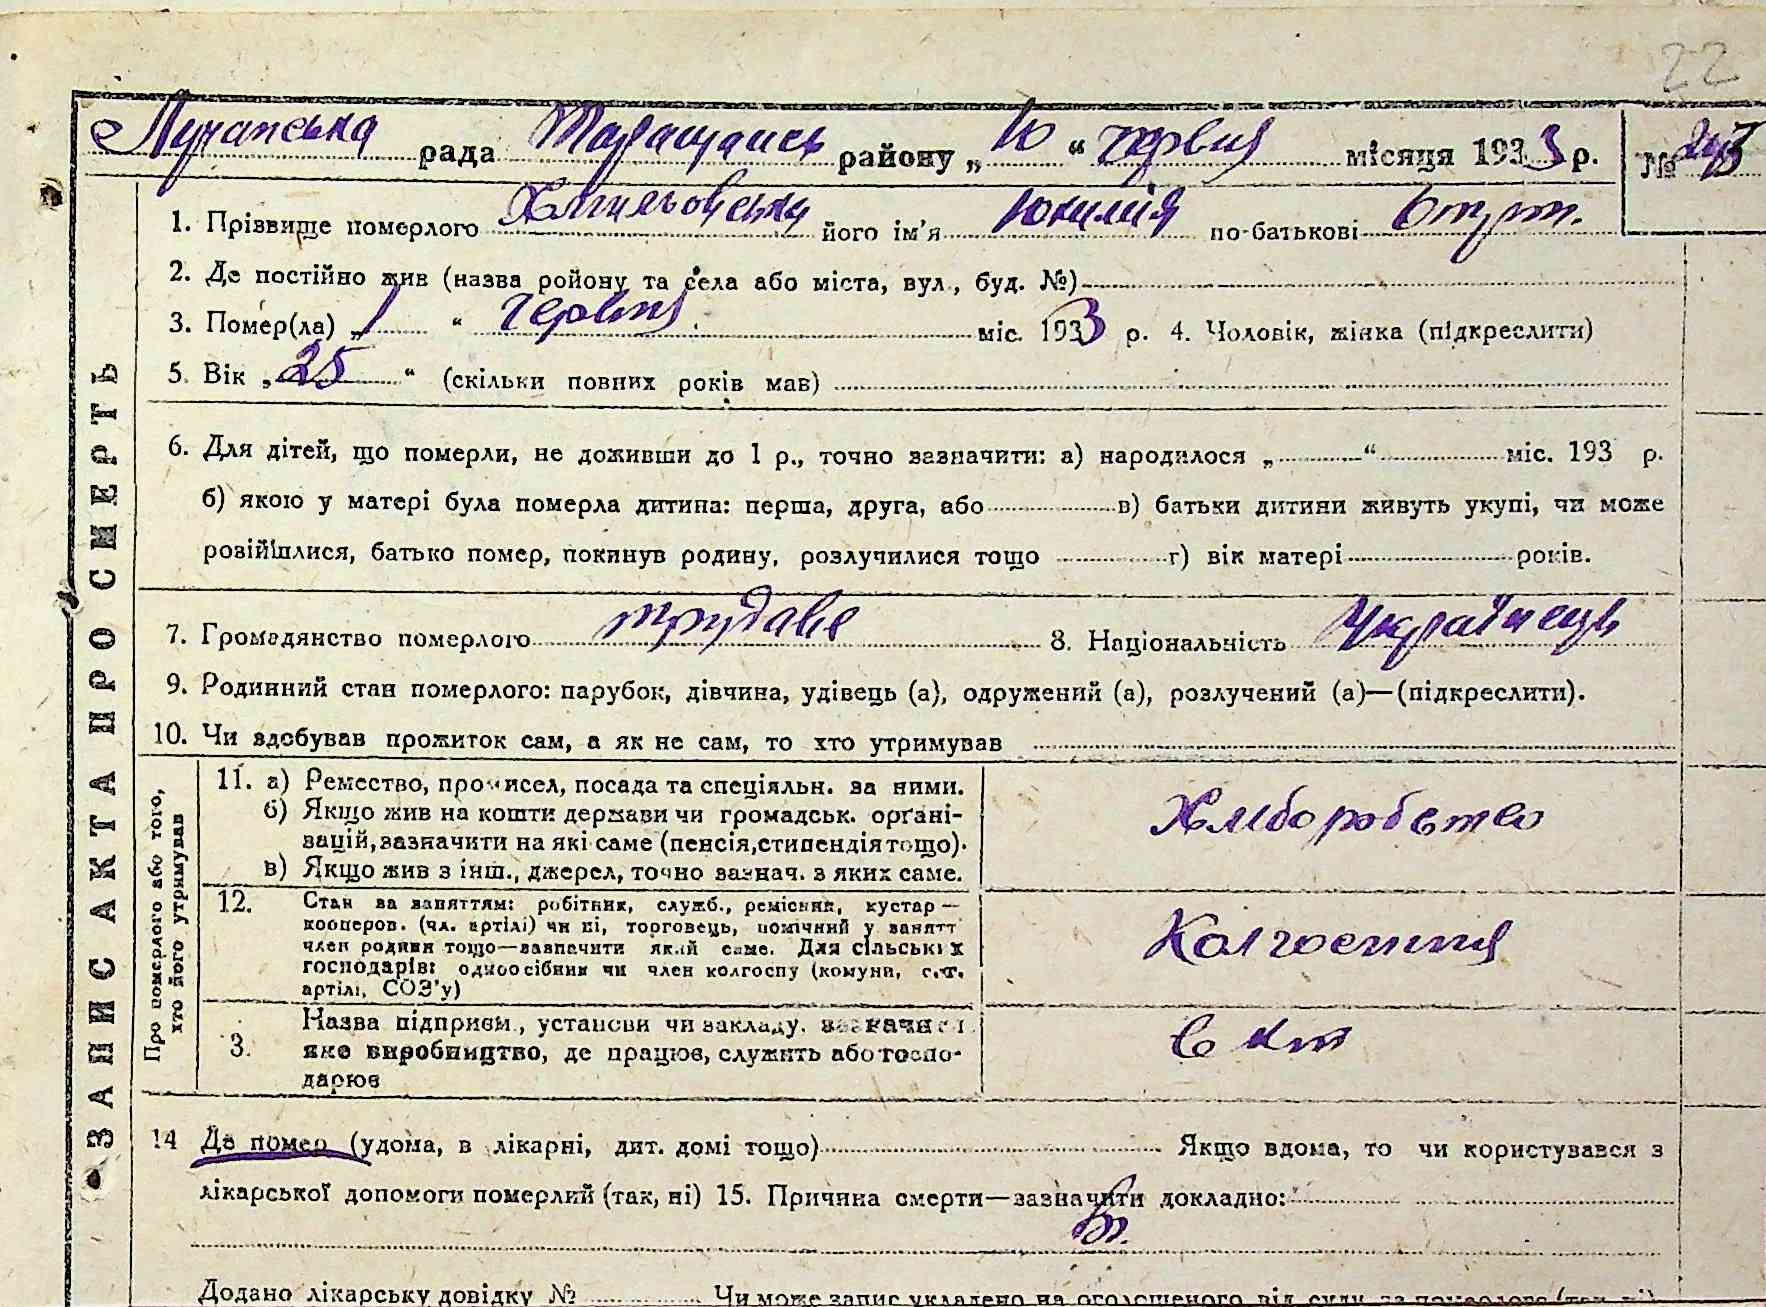 22
Лучанська рада Таращанськ району „10“ червня місяця 1933 р. № 243
1. Прізвище померлого Хмильовська його ім'я Юхимія по-батькові
2. Де постійно жив (назва ройону та села або міста, вул., буд. №)
3. Помер(ла) „1“ червня міс. 1933 р. 4. Чоловік, жінка (підкреслити)
5. Вік „25“ (скільки повних років мав)
6. Для дітей, що померли, не доживши до 1 р., точно зазначити: а) народилося „ “ міс. 193 р.
б) якою у матері була померла дитина: перша, друга, або в) батьки дитини живуть укупі, чи може
розійшлися, батько помер, покинув родину, розлучилися тощо г) вік матері років.
7. Громадянство померлого 8. Національність Українець
9. Родинний стан померлого: парубок, дівчина, удівець (а), одружений (а), розлучений (а)—(підкреслити).
10. Чи здобував прожиток сам, а як не сам, то хто утримував
ЗАПИС АКТА ПРО СМЕРТЬ
Про померлого або того,
хто його утримував
11. а) Ремество, промисел, посада та спеціяльн. за ними.
б) Якщо жив на кошти держави чи громадськ. орґані-
зацій, зазначити на які саме (пенсія, стипендія тощо).
в) Якщо жив з інш., джерел, точно зазнач. з яких саме.
Хліборобство
12. Стан за заняттям: робітник, служб., ремісник, кустар—
кооперов. (чл. артілі) чи ні, торговець, помічний у занятт
член родини тощо—зазначити який саме. Для сільських
господарів: одноосібник чи член колгоспу (комуни, с.-г.
артілі, СОЗ'у)
3. Назва підприєм., установи чи закладу, зазначити
яке виробництво, де працює, служить або госпо-
дарює
14 Де помер (удома, в лікарні, дит. домі тощо) Якщо вдома, то чи користувався з
лікарської допомоги померлий (так, ні) 15. Причина смерти—зазначити докладно:
Додано лікарську довідку № Чи може запис укладено на оголошеного від суду за померлого (так, ні)